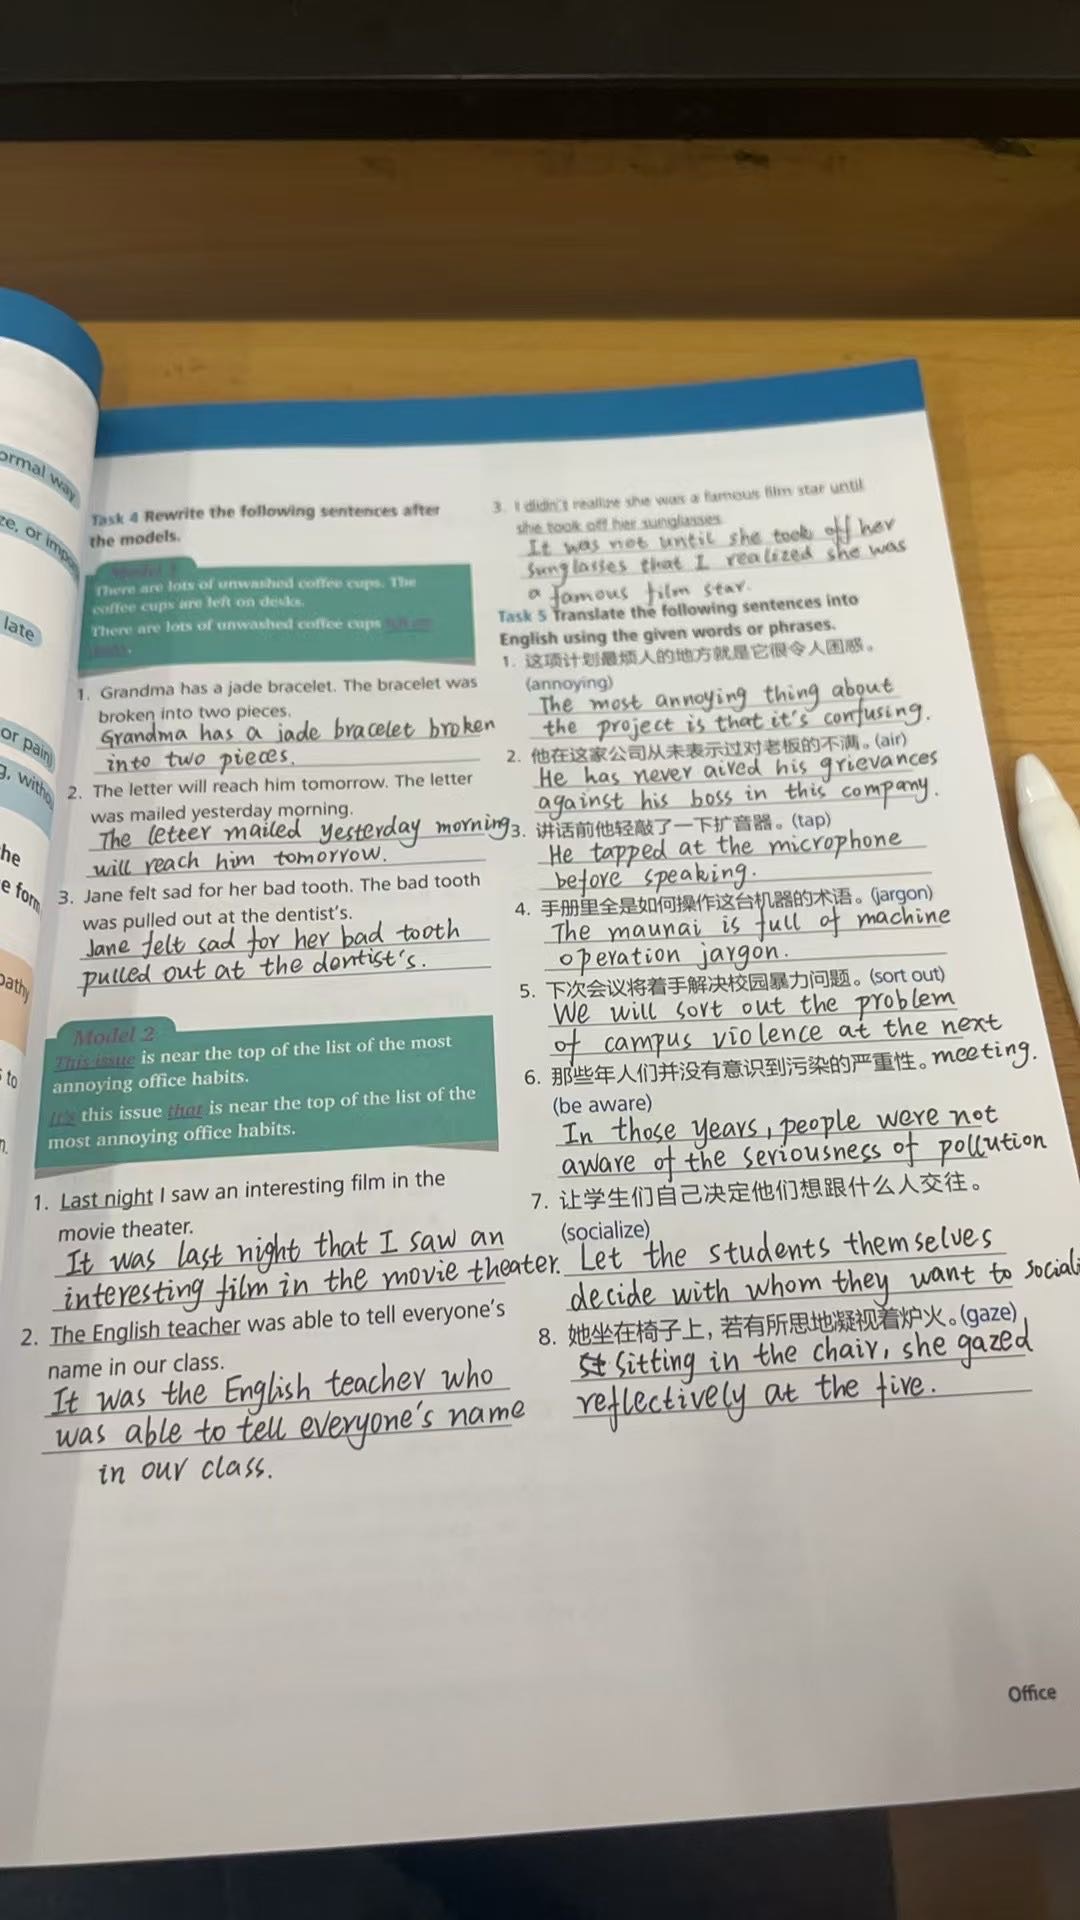 ormal way
ze, or impo
late
or pain
g, witho
the
e form
pathy
s to
n.
Task 4 Rewrite the following sentences after
the models.
Model 1
There are lots of unwashed coffee cups. The
coffee cups are left on desks.
There are lots of unwashed coffee cups left on
desks.
1. Grandma has a jade bracelet. The bracelet was
broken into two pieces.
Grandma has a jade bracelet broken
into two pieces.
2. The letter will reach him tomorrow. The letter
was mailed yesterday morning.
The letter mailed yesterday morning
will reach him tomorrow.
3. Jane felt sad for her bad tooth. The bad tooth
was pulled out at the dentist's.
Jane felt sad for her bad tooth
pulled out at the dentist's.
Model 2
This issue is near the top of the list of the most
annoying office habits.
It's this issue that is near the top of the list of the
most annoying office habits.
1. Last night I saw an interesting film in the
movie theater.
It was last night that I saw an
interesting film in the movie theater.
2. The English teacher was able to tell everyone's
name in our class.
It was the English teacher who
was able to tell everyone's name
in our class.
3. I didn't realize she was a famous film star until
she took off her sunglasses.
It was not until she took off her
sunglasses that I realized she was
a famous film star.
Task 5 Translate the following sentences into
English using the given words or phrases.
1. 这项计划最烦人的地方就是它很令人困惑。
(annoying)
The most annoying thing about
the project is that it's confusing.
2. 他在这家公司从未表示过对老板的不满。(air)
He has never aired his grievances
against his boss in this company.
3. 讲话前他轻敲了一下扩音器。(tap)
He tapped at the microphone
before speaking.
4. 手册里全是如何操作这台机器的术语。(jargon)
The maunai is full of machine
operation jargon.
5. 下次会议将着手解决校园暴力问题。(sort out)
We will sort out the problem
of campus violence at the next
meeting.
6. 那些年人们并没有意识到污染的严重性。
(be aware)
In those years, people were not
aware of the seriousness of pollution
7. 让学生们自己决定他们想跟什么人交往。
(socialize)
Let the students themselves
decide with whom they want to sociali
8. 她坐在椅子上，若有所思地凝视着炉火。(gaze)
Sitting in the chair, she gazed
reflectively at the fire.
Office